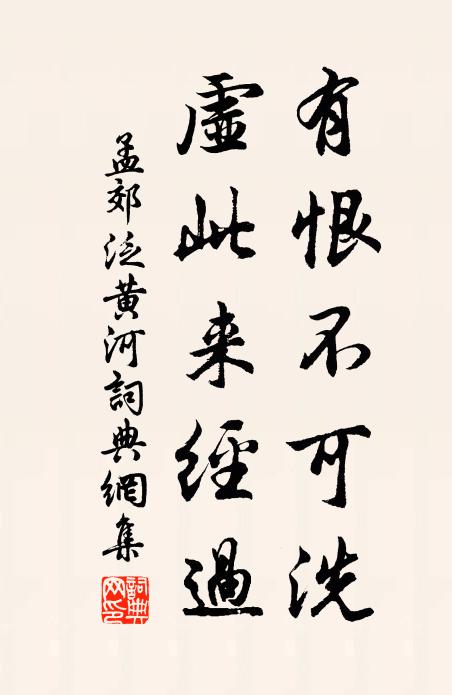 有恨不可洗
虚此来經過
孟郊泛黄河詞典網集
詞典
网印